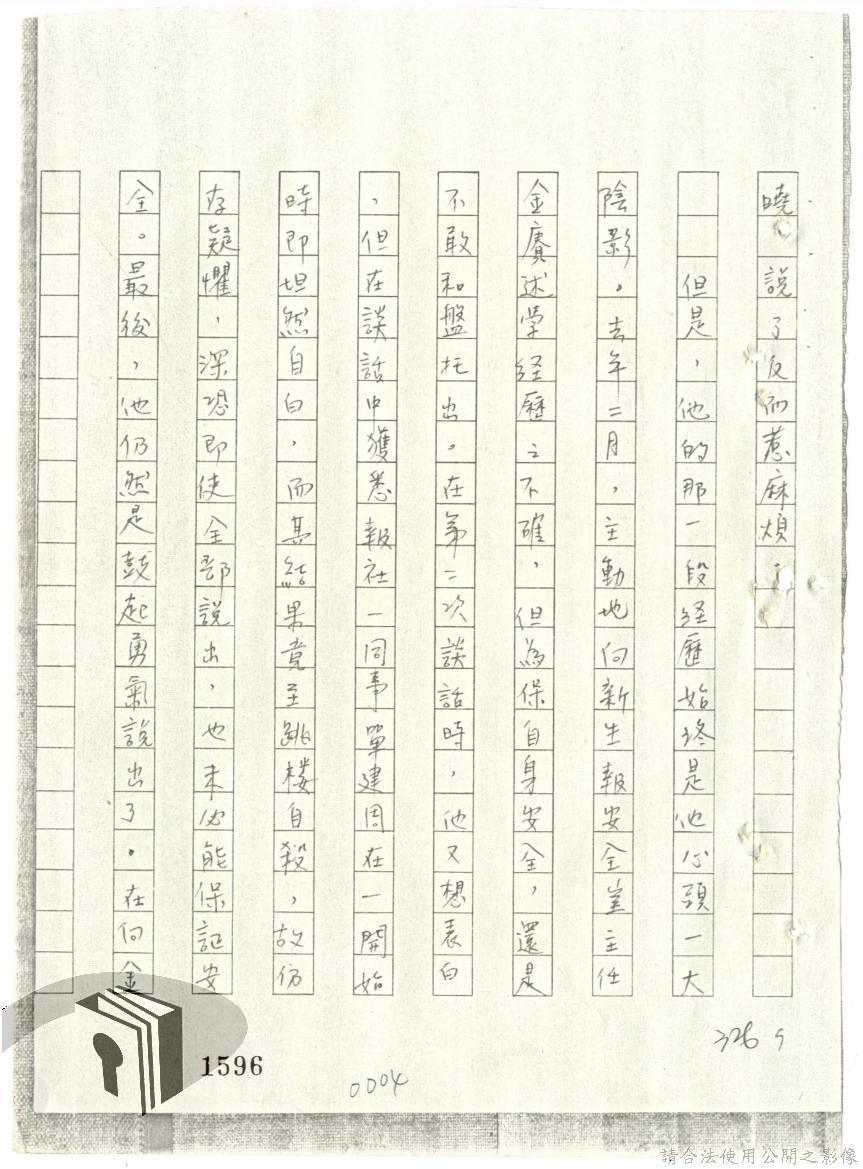 曉，說了反而惹麻煩。
但是，他的那一段経歷始终是他心頭一大
陰影。去年二月，主動地向新生報安全室主任
金賡述学経歷之不確，但為保自身安全，還是
不敢和盤托出。在第二次談話時，他又想表白
，但在談話中獲悉報社一同事單建周在一開始
時即坦然自白，而其結果竟至跳楼自殺，故仍
存疑懼，深恐即使全部說出，也未必能保証安
全。最後，他仍然是鼓起勇氣說出了。在向金
326 5
1596
0004
請合法使用公開之影像